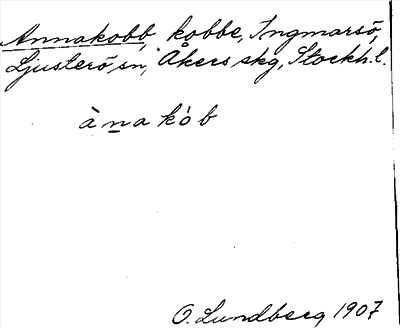 Annakobb, kobbe, Ingmarsö,
Ljusterö, sn, Åkers skg, Stockh. l.
ànakòb
O. Lundberg 1907